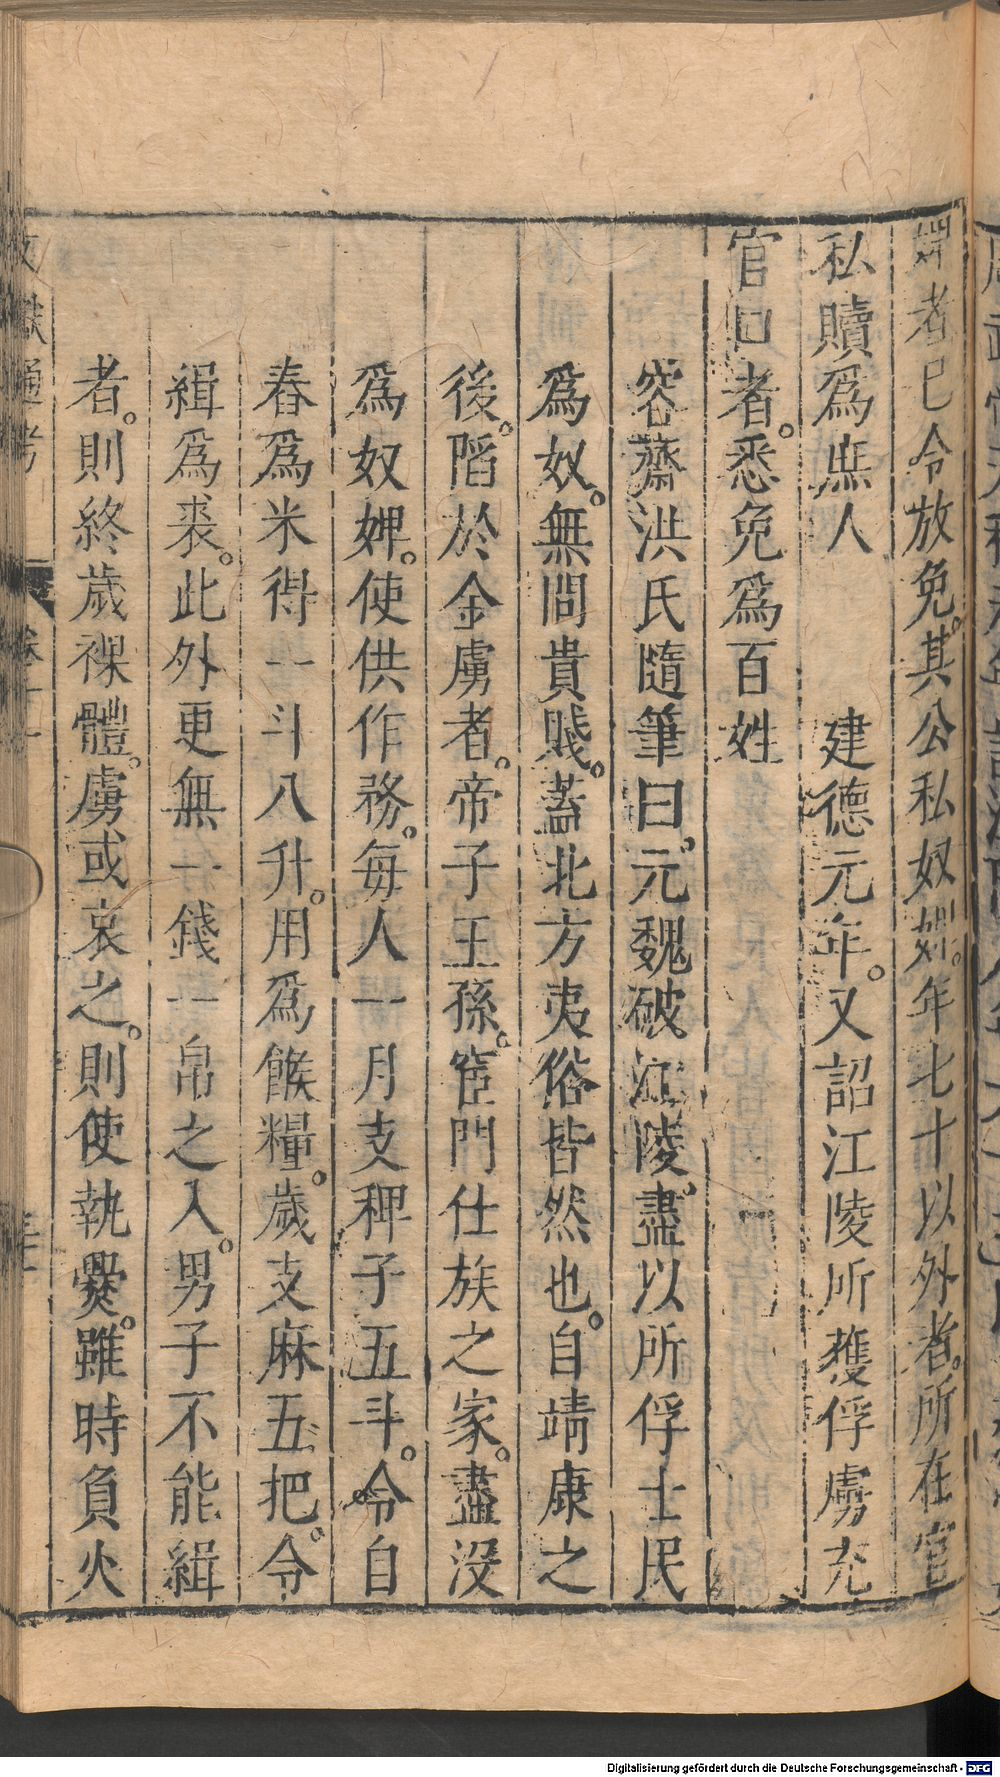 婢者已令放免。其公私奴婢。年七十以外者。所在官
私贖爲庶人　建德元年。又詔江陵所獲俘虜充
官口者。悉免爲百姓
容齋洪氏隨筆曰。元魏破江陵。盡以所俘士民
爲奴。無問貴賤。蓋北方夷俗皆然也。自靖康之
後。陷於金虜者。帝子王孫。宦門仕族之家。盡沒
爲奴婢。使供作務。每人一月支稗子五斗。令自
舂爲米得一斗八升。用爲餱糧。歲支麻五把。令
緝爲裘。此外更無一錢一帛之入。男子不能緝
者。則終歲裸體。虜或哀之。則使執爨。雖時負火
文獻通考
卷十一
Digitalisierung gefördert durch die Deutsche Forschungsgemeinschaft - DFG